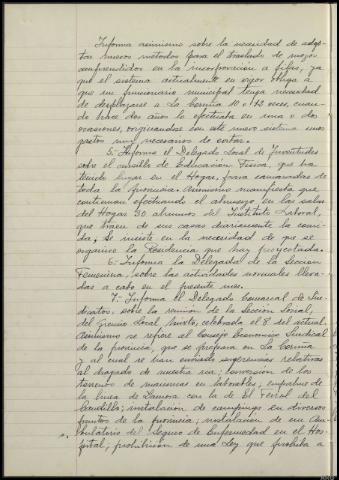 Informa asimismo sobre la necesidad de adop-
tar nuevos métodos para el traslado de mozos
comprendidos en la incorporación a filas, ya
que el sistema actualmente en vigor obliga a
que un funcionario municipal tenga necesidad
de desplazarse a La Coruña 10 o 12 veces, cuan-
do hace dos años lo efectuaba en una o dos
ocasiones, originandose con este nuevo sistema unos
gastos muy necesarios de evitar.
5.- Informa el Delegado Local de Juventudes
sobre el cursillo de Educación Fisica, que ha
tenido lugar en el Hogar, para camaradas de
toda la provincia. Asimismo manifiesta que
continuan efectuando el almuerzo en las salas
del Hogar 30 alumnos del Instituto Laboral,
que traen de sus casas diariamente la comi-
da. Se insiste en la necesidad de que se
organice la Residencia que hay proyectada.
6.- Informa la Delegada de la Sección
Femenina, sobre las actividades normales lleva-
das a cabo en el presente mes.
7.- Informa el Delegado Comarcal de Sin-
dicatos, sobre la reunión de la Sección Social,
del Gremio Local, Mixto, celebrada el 8 del actual.
Asimismo se refiere al Consejo Economico Sindical
de la provincia, que se prepara en La Coruña
y al cual se han enviado sugerencias relativas
al dragado de nuestra ria; conversión de los
terrenos de marismas en laborables; empalme de
la linea de Zamora con la de El Ferrol del
Caudillo; instalación de campings en diversos
puntos de la provincia; instalación de un Am-
bulatorio del Seguro de Enfermedad en el Hos-
pital; prohibición de una Ley que prohiba a